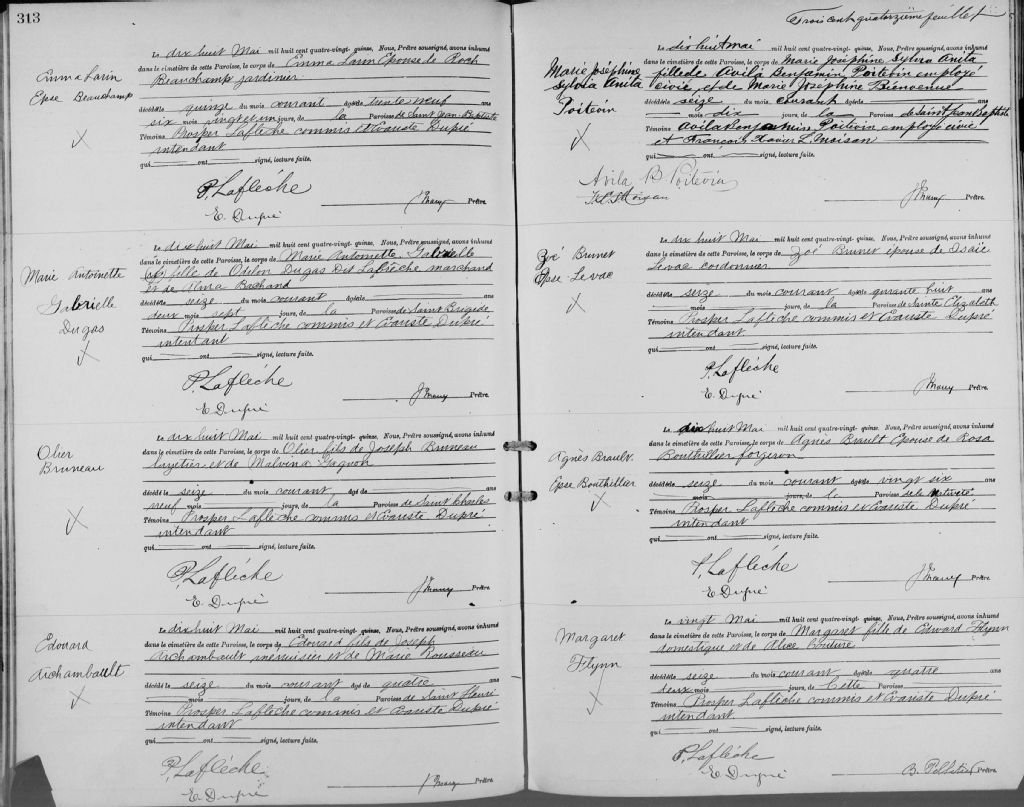 313
Emma Larin
Epse Beauchamp
Le dix huit Mai mil huit cent quatre-vingt- quinze, Nous, Prêtre soussigné, avons inhumé
dans le cimetière de cette Paroisse, le corps de Emma Larin Epouse de Roch
Beauchamp jardinier
décédé le quinze du mois courant âgée de trente neuf ans
six mois vingt et un jours, de la Paroisse de Saint Jean-Baptiste
Témoins Prosper Laflèche commis et Evariste Dupré
intendant
qui ont signé, lecture faite.
P. Laflèche
E. Dupré
Prêtre.
Marie Antoinette
Gabrielle
Dugas
Le dix huit Mai mil huit cent quatre-vingt- quinze, Nous, Prêtre soussigné, avons inhumé
dans le cimetière de cette Paroisse, le corps de Marie Antoinette Gabrielle
fille de Odelon Dugas Dit Laflèche marchand
et de Alma Brchand
décédé le seize du mois courant âgée de ans
deux mois sept jours, de la Paroisse de Saint Brigide
Témoins Prosper Laflèche commis et Evariste Dupré
intentant
qui ont signé, lecture faite.
P. Laflèche
E. Dupré
Prêtre.
Olier
Bruneau
Le dix huit Mai mil huit cent quatre-vingt- quinze, Nous, Prêtre soussigné, avons inhumé
dans le cimetière de cette Paroisse, le corps de Olier fils de Joseph Bruneau
laitier et de Malvina Gagnon
décédé le seize du mois courant âgé de ans
neuf mois jours, de la Paroisse de Saint Charles
Témoins Prosper Laflèche commis et Evariste Dupré
intendant
qui ont signé, lecture faite.
P. Laflèche
E. Dupré
Prêtre.
Edouard
Archambault
Le dix huit Mai mil huit cent quatre-vingt- quinze, Nous, Prêtre soussigné, avons inhumé
dans le cimetière de cette Paroisse, le corps de Edouard fils de Joseph
Archambault, menuisier et de Marie Rousseau
décédé le seize du mois courant âgé de quatre ans
mois jours, de la Paroisse de Saint Henri
Témoins Prosper Laflèche commis et Evariste Dupré
intendant
qui ont signé, lecture faite.
P. Laflèche
E. Dupré
Prêtre.
Trois cent quatorzième feuillet
Marie Joséphine
Sylvia Anita
Poitevin
Le dix huit mai mil huit cent quatre-vingt- quinze, Nous, Prêtre soussigné, avons inhumé
dans le cimetière de cette Paroisse, le corps de Marie Joséphine Sylvia Anita
fille de Avila Benjamin Poitevin employé
civic et de Marie Joséphine Bienvenue
décédé le seize du mois courant âgée de ans
mois dix jours, de la Paroisse de Saint Jean Baptiste
Témoins Avila Benjamin Poitevin employé civic
et François Xavier L. Moisan
qui ont signé, lecture faite.
Avila B Poitevin
Prêtre.
Zoé Brunet
Epse Levac
Le dix huit Mai mil huit cent quatre-vingt- quinze, Nous, Prêtre soussigné, avons inhumé
dans le cimetière de cette Paroisse, le corps de Zoé Brunet épouse de Isaïe
Levac cordonnier
décédé le seize du mois courant âgée de qurante huit ans
mois jours, de la Paroisse de Sainte Elizabeth
Témoins Prosper Laflèche commis et Evariste Dupré
intendant
qui ont signé, lecture faite.
P. Laflèche
E. Dupré
Prêtre.
Agnès Brault
Epse Bouthillier
Le dix huit Mai mil huit cent quatre-vingt- quinze, Nous, Prêtre soussigné, avons inhumé
dans le cimetière de cette Paroisse, le corps de Agnès Brault Epouse de Rosa
Bouthillier forgeron
décédé le seize du mois courant âgée de vingt six ans
mois jours, de la Paroisse de la Nativité
Témoins Prosper Laflèche commis et Evariste Dupré
intendant
qui ont signé, lecture faite.
P. Laflèche
E. Dupré
Prêtre.
Margaret
Flynn
Le vingt Mai mil huit cent quatre-vingt- quinze, Nous, Prêtre soussigné, avons inhumé
dans le cimetière de cette Paroisse, le corps de Margaret fille de Edward Flynn
domestique et de Alice Couture
décédé le seize du mois courant âgée de quatre ans
deux mois jours, de Cette Paroisse
Témoins Prosper Laflèche commis et Evariste Dupré
intendant.
qui ont signé, lecture faite.
P. Laflèche
E. Dupré
B. Pelletier Prêtre.